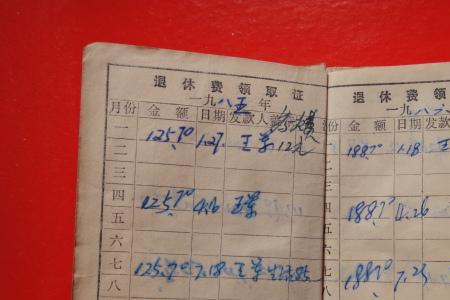 退休费领取证
一九八五年
月份 金额 日期 发款人
一 125.70 1.27. 王 12元
二
三
四 125.70 4.16 王
五
六
七 125.70 7.18 王
八
一九八六
份 金额 日期 发款
188.70 1.18 王
二
三
四 188.70 4.26
五
六
七 188.70 7.23
八